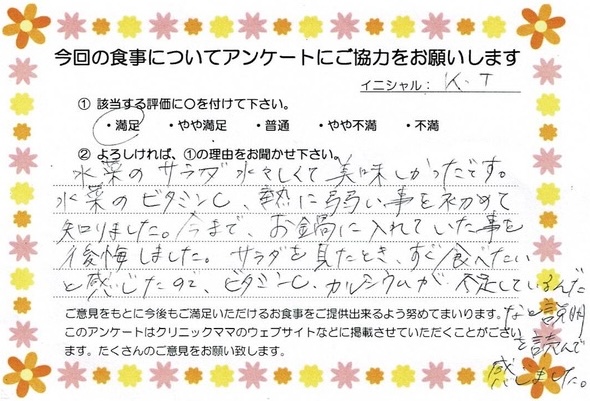 今回の食事についてアンケートにご協力をお願いします
イニシャル: K.T
① 該当する評価に○を付けて下さい。
・満足 ・やや満足 ・普通 ・やや不満 ・不満
② よろしければ、①の理由をお聞かせ下さい。
水菜のサラダ水々しくて美味しかったです。
水菜のビタミンC、熱に弱い事を初めて
知りました。今まで、お鍋に入れていた事を
後悔しました。サラダを見たとき、すぐ食べたい
と感じたので、ビタミンC、カルシウムが不足しているんだ
なと説明
を読んで
感じました。
ご意見をもとに今後もご満足いただけるお食事をご提供出来るよう努めてまいります。
このアンケートはクリニックママのウェブサイトなどに掲載させていただくことがござい
ます。たくさんのご意見をお願い致します。